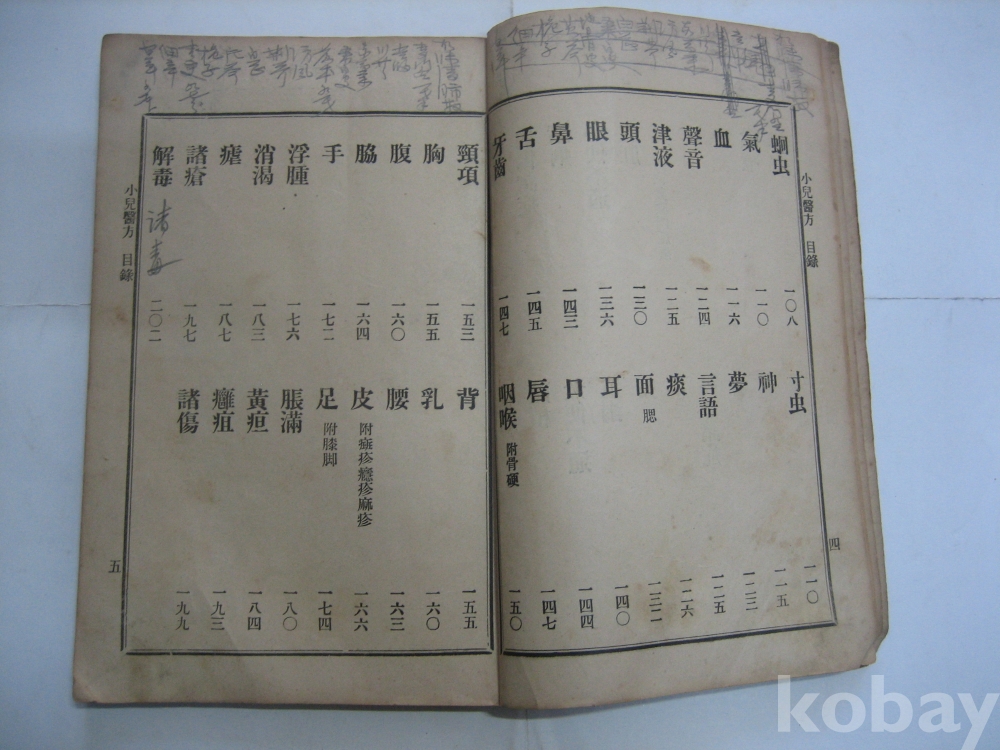 小兒醫方 目錄
四
蛔虫 一〇八
寸虫 一一〇
氣 一一〇
神 一一五
血 一一六
夢 一二三
聲音 一二四
言語 一二五
津液 一二五
痰 一二六
頭 一三〇
面 腮 一三二
眼 一三六
耳 一四〇
鼻 一四三
口 一四四
舌 一四五
唇 一四七
牙齒 一四七
咽喉 附骨硬 一五〇
頸項 一五三
背 一五五
胸 一五五
乳 一六〇
腹 一六〇
腰 一六三
脇 一六四
皮 附癍疹癮疹麻疹 一六六
手 一七二
足 附膝脚 一七四
浮腫 一七六
脹滿 一八〇
消渴 一八三
黃疸 一八四
瘧 一八七
癰疽 一九三
諸瘡 一九七
諸傷 一九九
解毒 二〇二
诸毒
小兒醫方 目錄
五
kobay